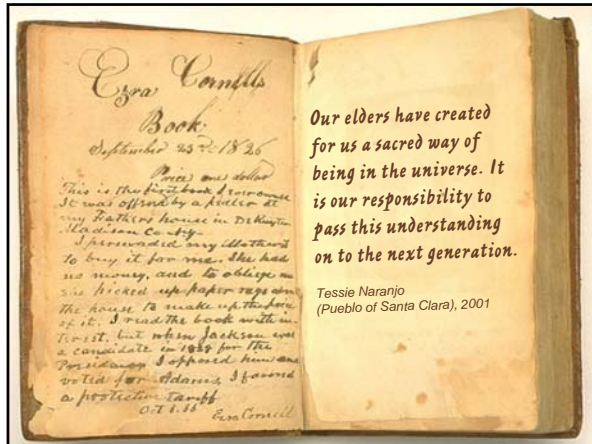 Ezra Cornell's
Book.
September 23rd 1826
Price one dollar
This is the first book I ever owned
It was offered by a pedler at
my Fathers house in DeRuyter
Madison Co NY-
I persuaded my Mother
to buy it for me. She had
no money, and to oblige me
she picked up paper rags about
the house to make up the price
of it. I read the book with in-
terest, but when Jackson was
a candidate in 1828 for the
Presidency I opposed him and
voted for Adams, I favored
a protective tariff
Oct
Ezra Cornell
Our elders have created
for us a sacred way of
being in the universe. It
is our responsibility to
pass this understanding
on to the next generation.
Tessie Naranjo
(Pueblo of Santa Clara), 2001